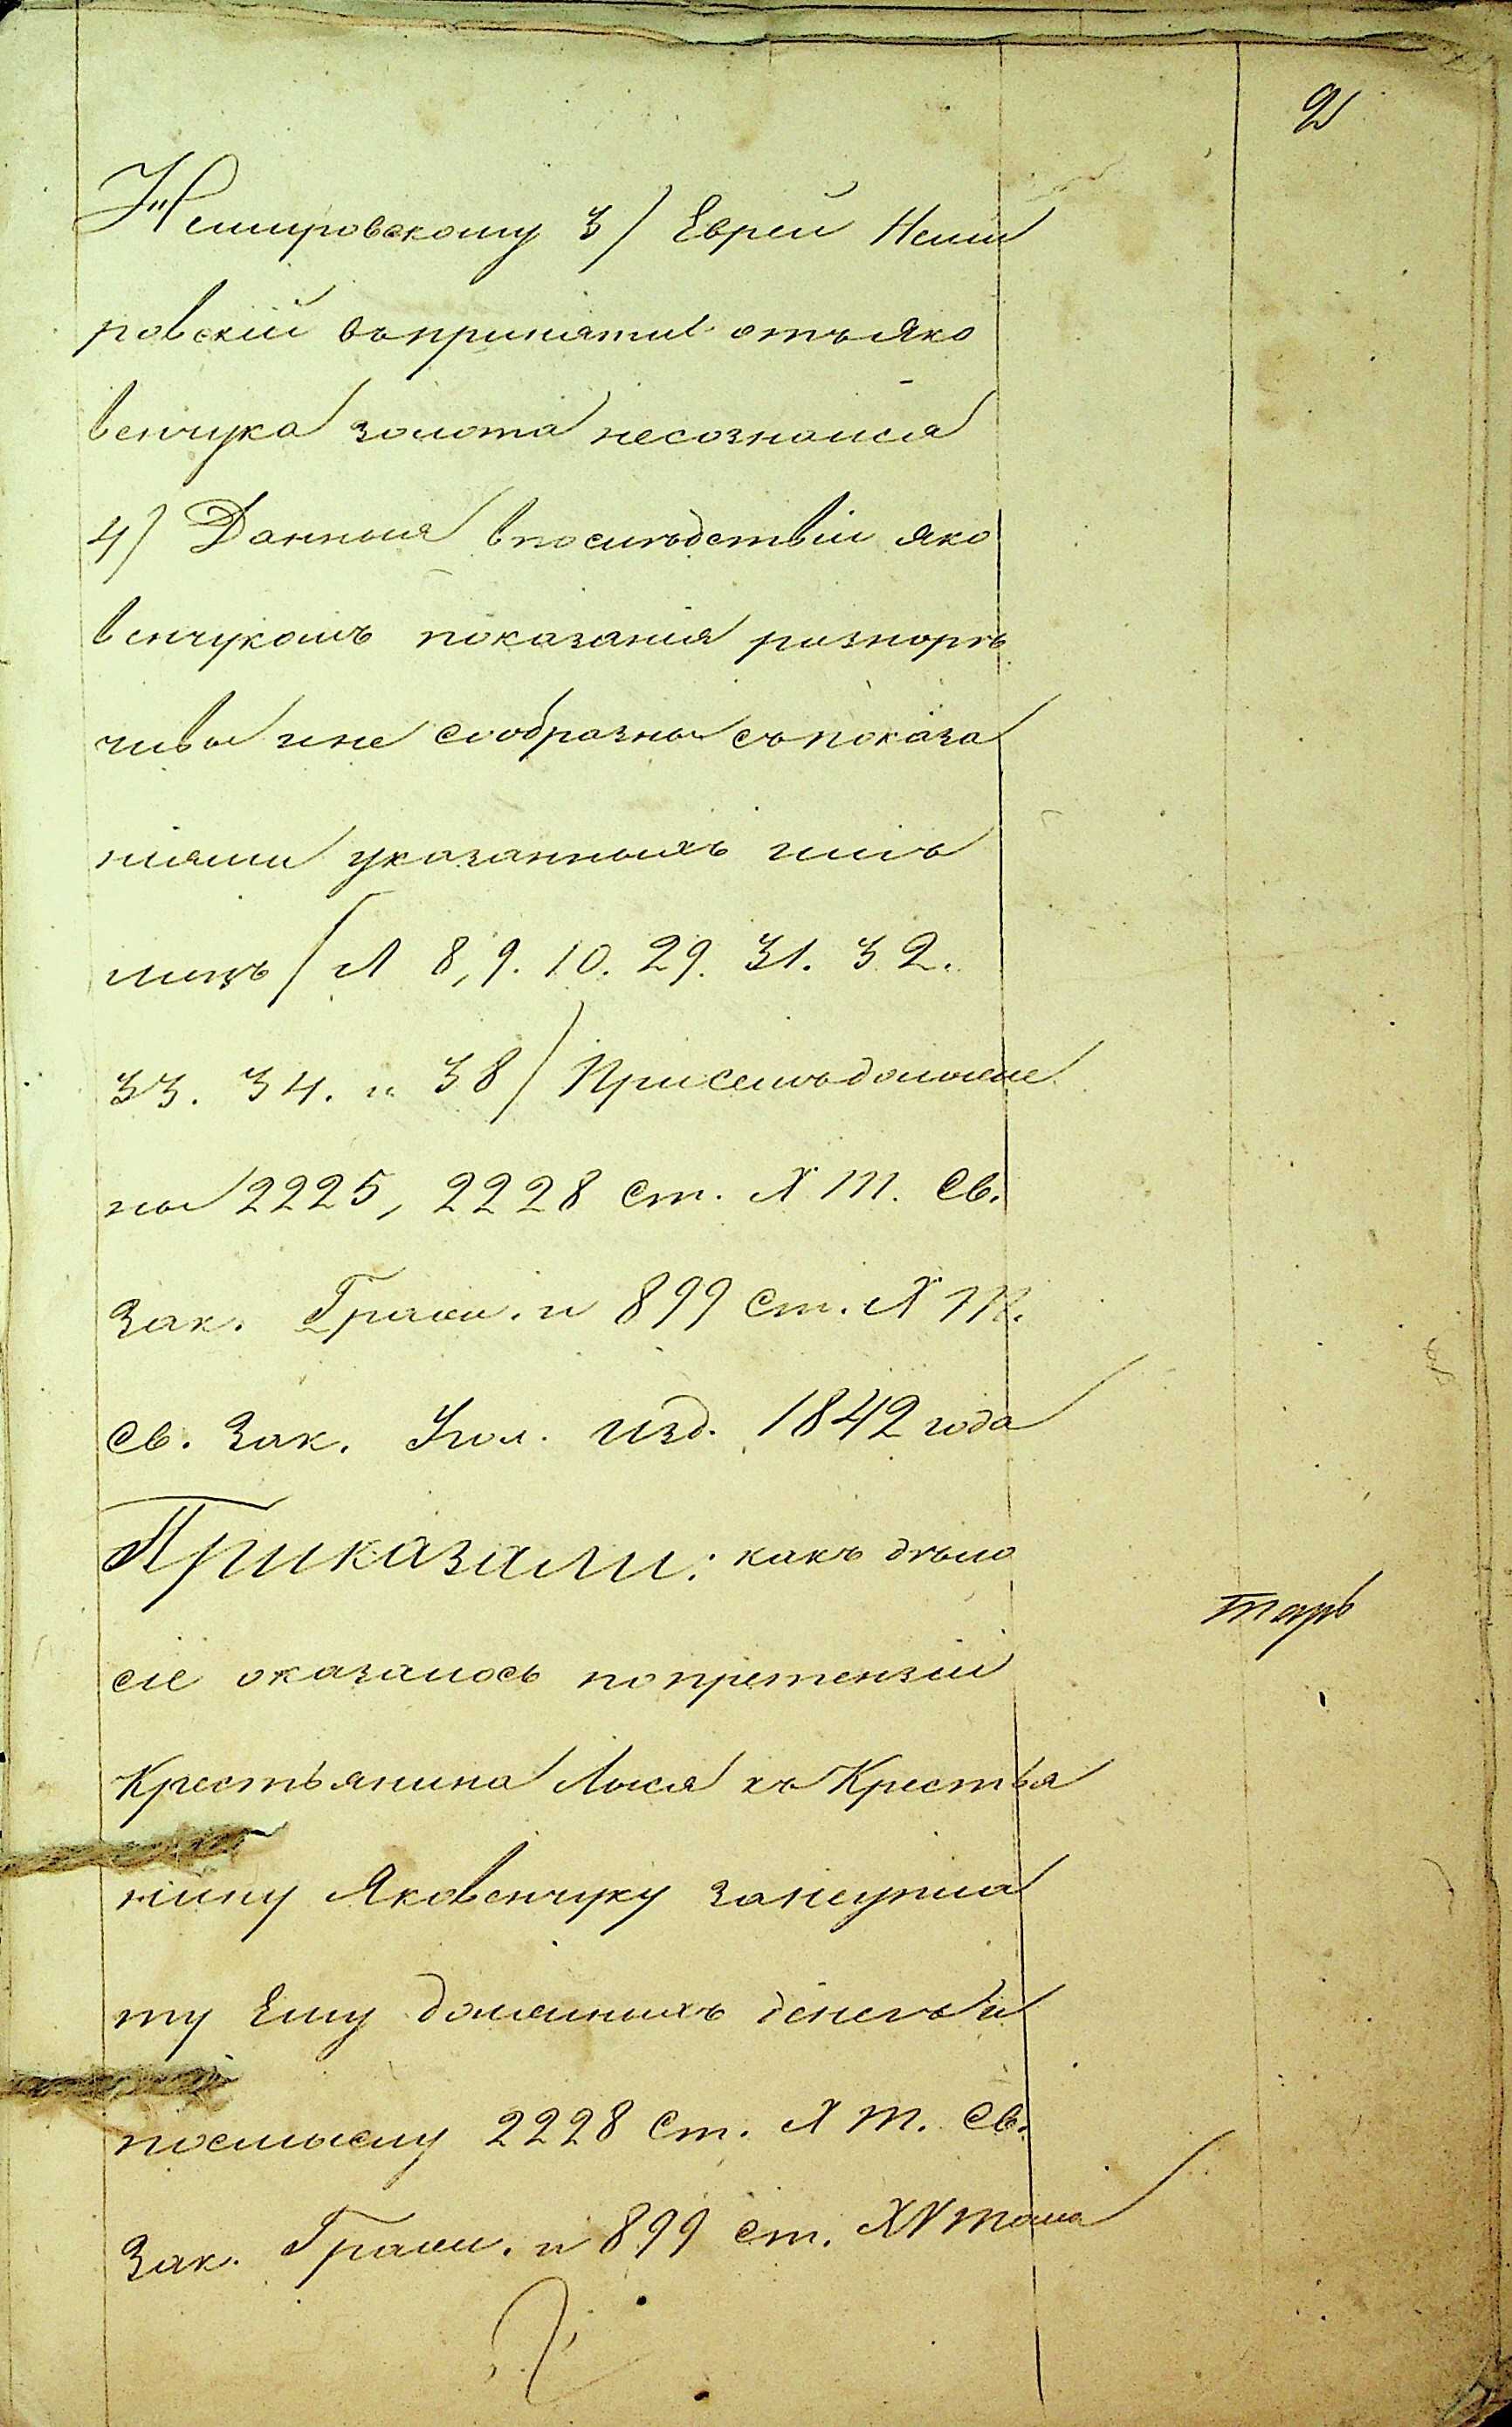 2
Немировскому 3) Еврей Неми
ровскій въпринятіи отъ Яко
венчука золота несознался
4) Данныя впослѣдствіи Яко
венчукомъ показанія разнорѣ
чивы ине сообразны съпоказа
ніями указанныхъ имъ
лицъ (Л 8, 9. 10. 29. 31. 32.
33. 34. и 38) Присемъ доложе
ны 2225, 2228 ст. X т. Св.
Зак. Граж. и 899 ст. X т.
Св. Зак. Угол. изд. 1842 года
Приказали: какъ дѣло
сіе оказалось попретензіи
Крестьянина Лыся къ Крестья
нину Яковенчуку занеупла
ту Ему должныхъ денегъ и
посмыслу 2228 ст. X т. Св.
Зак. Граж. и 899 ст. XV тома
тарь